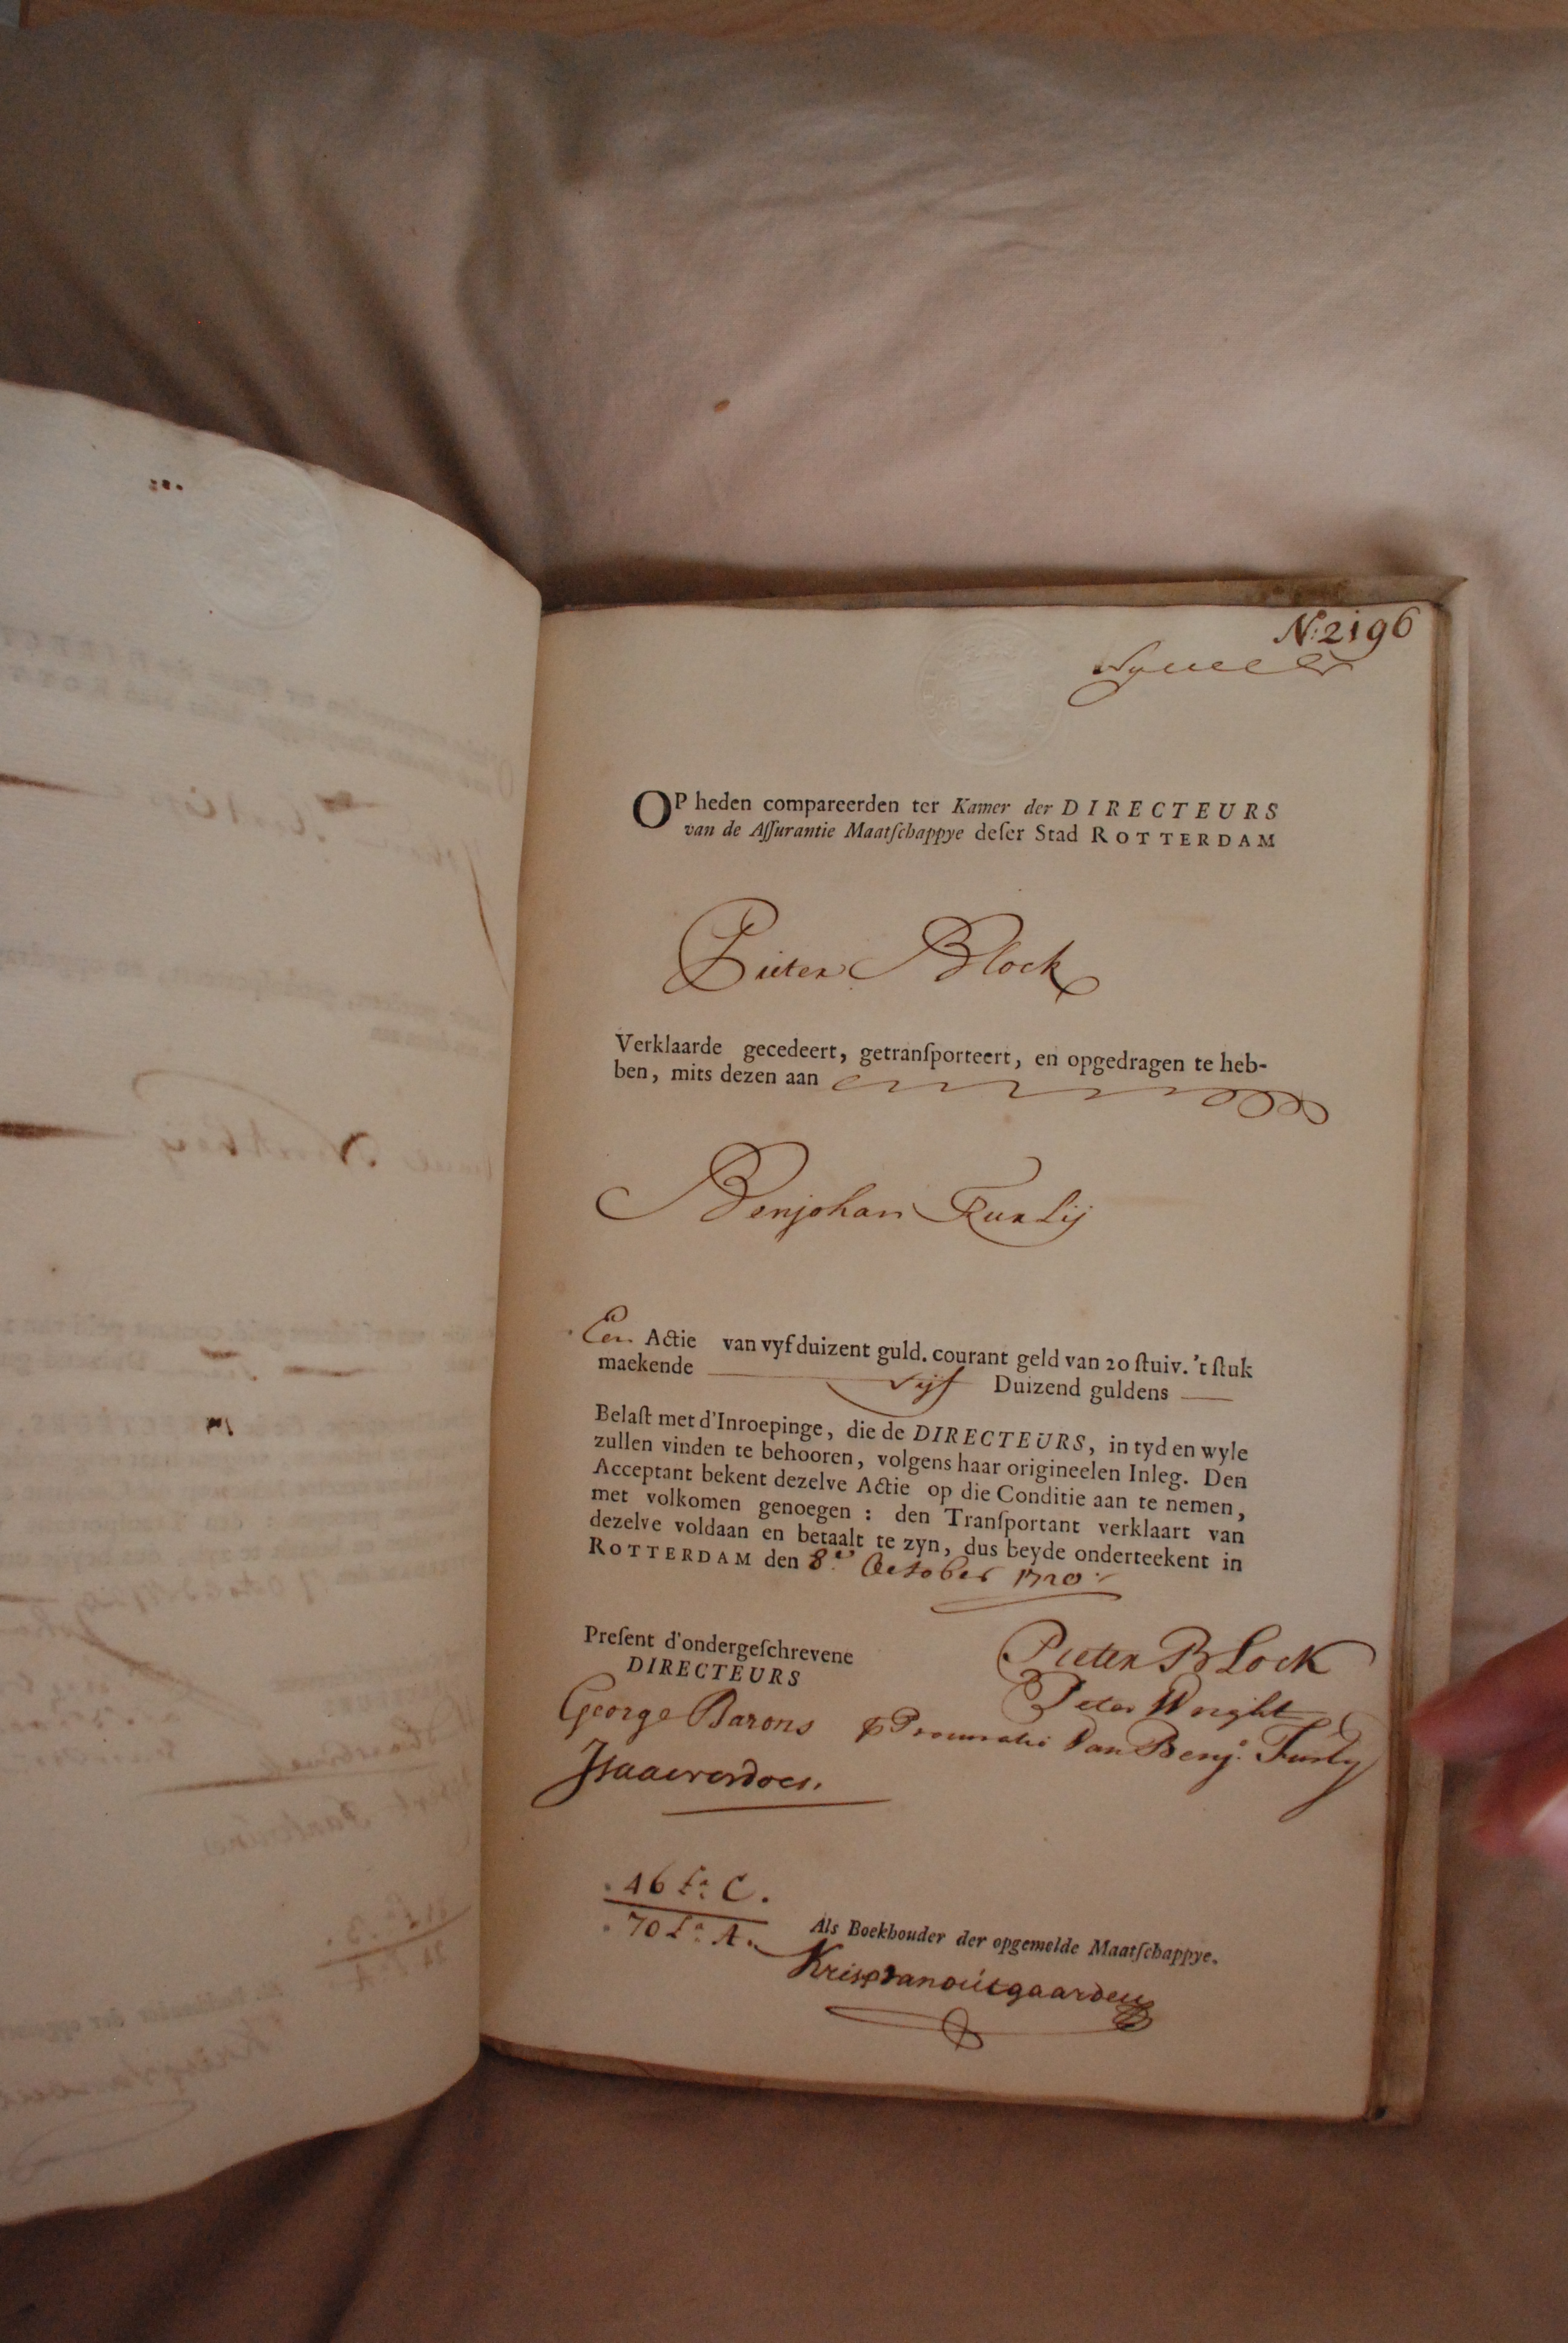 N: 2196
OP heden compareerden ter Kamer der DIRECTEURS
van de Aſſurantie Maatſchappye deſer Stad ROTTERDAM
Pieter Block
Verklaarde gecedeert, getranſporteert, en opgedragen te heb-
ben, mits dezen aan
Benjohan Furlij
Een Actie van vyfduizent guld. courant geld van 20 ſtuiv. 't ſtuk
maekende Vijf Duizend guldens
Belaſt met d'Inroepinge, die de DIRECTEURS, in tyd en wyle
zullen vinden te behooren, volgens haar origineelen Inleg. Den
Acceptant bekent dezelve Actie op die Conditie aan te nemen,
met volkomen genoegen : den Tranſportant verklaart van
dezelve voldaan en betaalt te zyn, dus beyde onderteekent in
ROTTERDAM den 8.e October 1720
Preſent d'ondergeſchrevene
DIRECTEURS
Pieter Block
Peter Wright
George Barons
Procuratie Van Benj:n Furly
Isaacverdoes.
46 f.o C.
70 f.o A.
Als Boekhouder der opgemelde Maatſchappye.
Krispvanoutgaarden